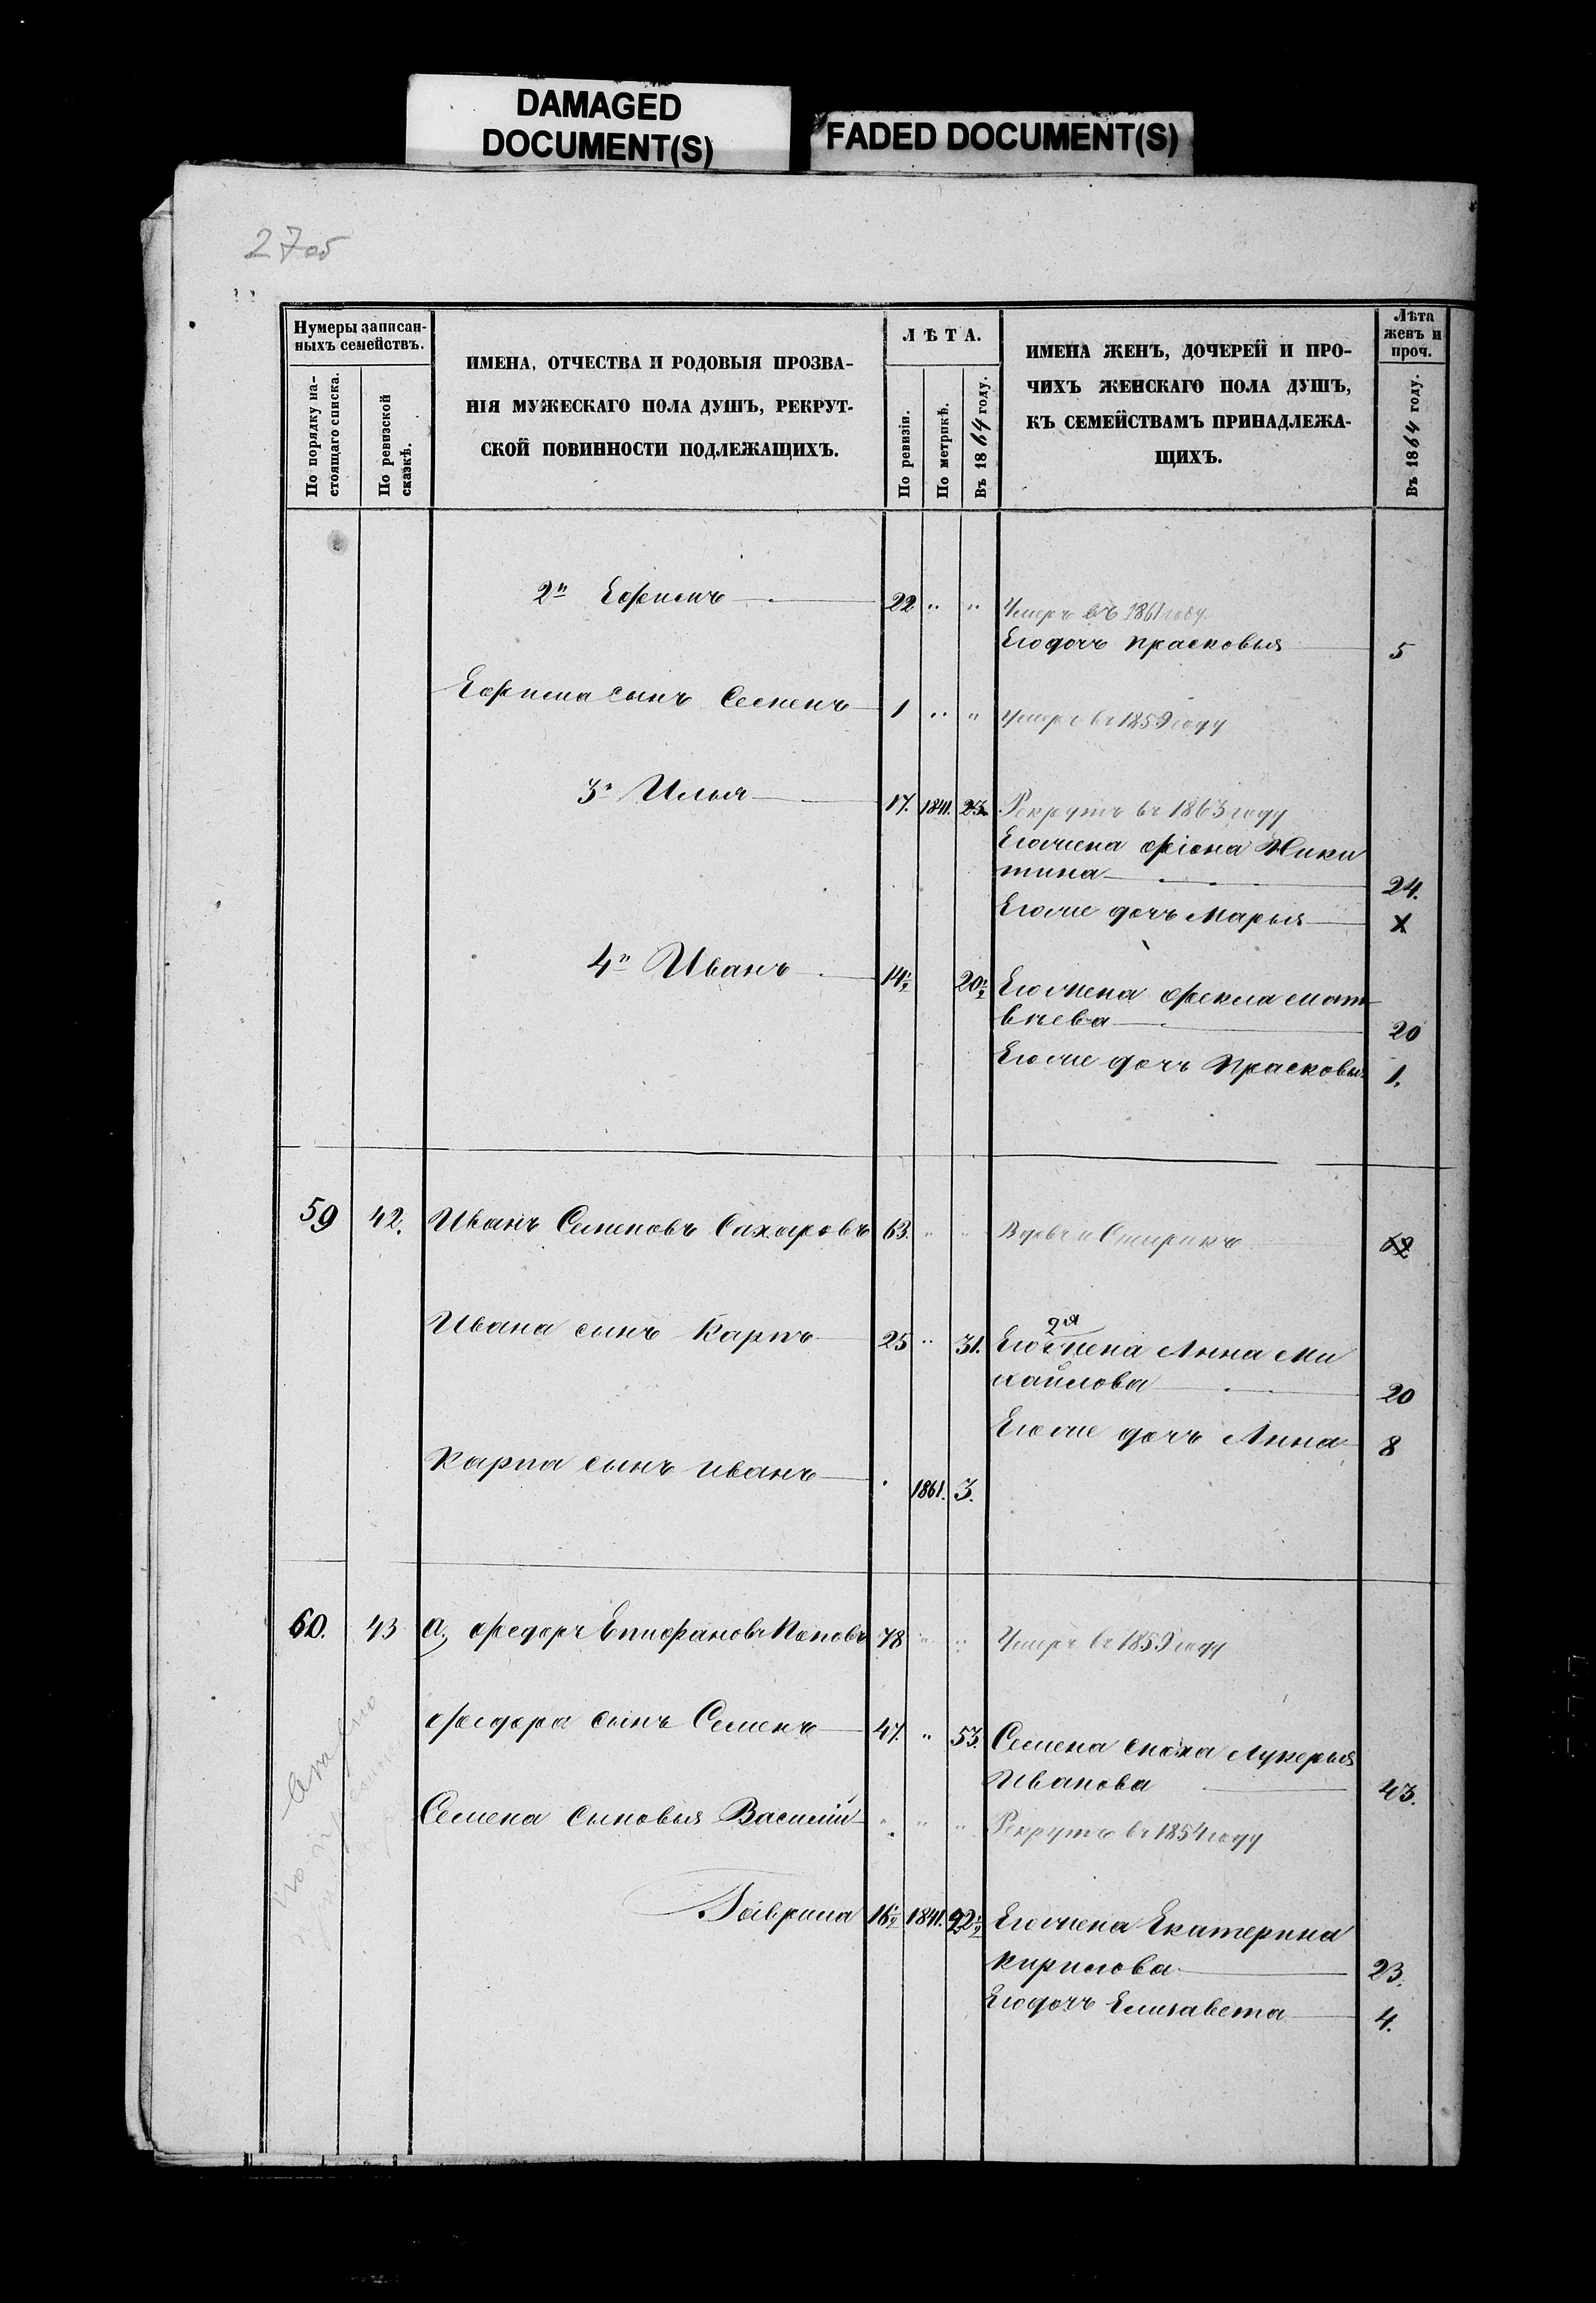 DAMAGED
DOCUMENT(S)
FADED DOCUMENT(S)
27об
Нумеры записан-
ныхъ семействъ.
По порядку на-
стоящаго списка.
По ревизской
сказкѣ.
ИМЕНА, ОТЧЕСТВА И РОДОВЫЯ ПРОЗВА-
НІЯ МУЖЕСКАГО ПОЛА ДУШЪ, РЕКРУТ-
СКОЙ ПОВИННОСТИ ПОДЛЕЖАЩИХЪ.
ЛѢТА.
По ревизіи.
По метрикѣ.
Въ 1864 году.
ИМЕНА ЖЕНЪ, ДОЧЕРЕЙ И ПРО-
ЧИХЪ ЖЕНСКАГО ПОЛА ДУШЪ,
КЪ СЕМЕЙСТВАМЪ ПРИНАДЛЕЖА-
ЩИХЪ.
Лѣта
женъ и
проч.
Въ 1864 году.
2й Ефимъ 22 " " Умеръ въ 1861 году
Его дочь Прасковья 5
Ефима сынъ Семенъ 1 " " Умеръ въ 1859 году
3й Илья 17. 1841. 23 Рекрутъ въ 1863 году
Его жена Фіона Ники
тина 24.
Его же дочь Марья
4й Иванъ 14½ 20½ Его жена Фекла Мат
вѣева 20
Его же дочь Прасковья 1.
59 42. Иванъ Семеновъ Сахаровъ 63. " " Вдовъ и Старикъ
Ивана сынъ Карпъ 25 " 31. Его 2я жена Анна Ми
хайлова 20
Его же дочь Анна 8
Карпа сынъ Иванъ 1861. 3.
60. 43 а, Федоръ Епифановъ Поповъ 78 " " Умеръ въ 1859 году
Федора сынъ Семенъ 47. " 53. Семена жена Лукерья
Иванова 43.
Семена сыновья Василій " " " Рекрутъ въ 1854 году
Гаврила 16½ 1841. 22½ Его жена Екатерина
Кирилова 23.
Его дочь Елизавета 4.